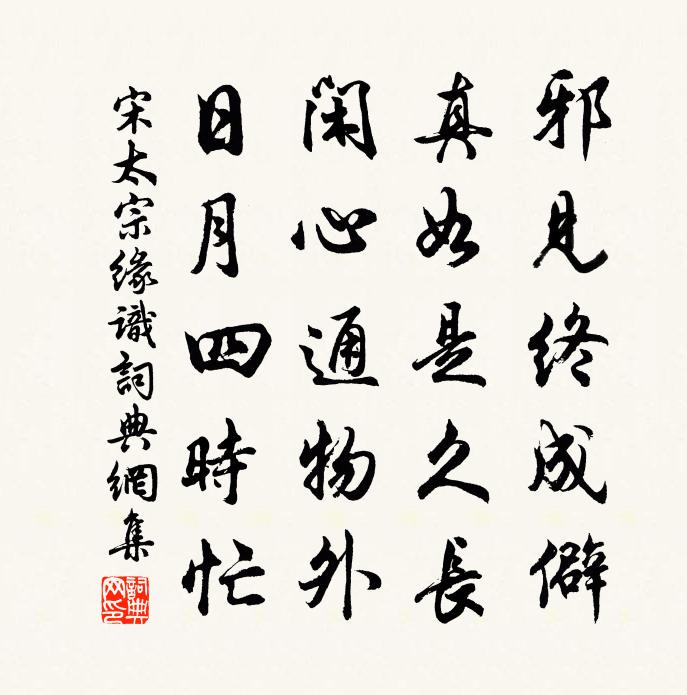 邪見終成僻
真如是久長
閑心通物外
日月四時忙
宋太宗緣識詞典網集
詞典網印